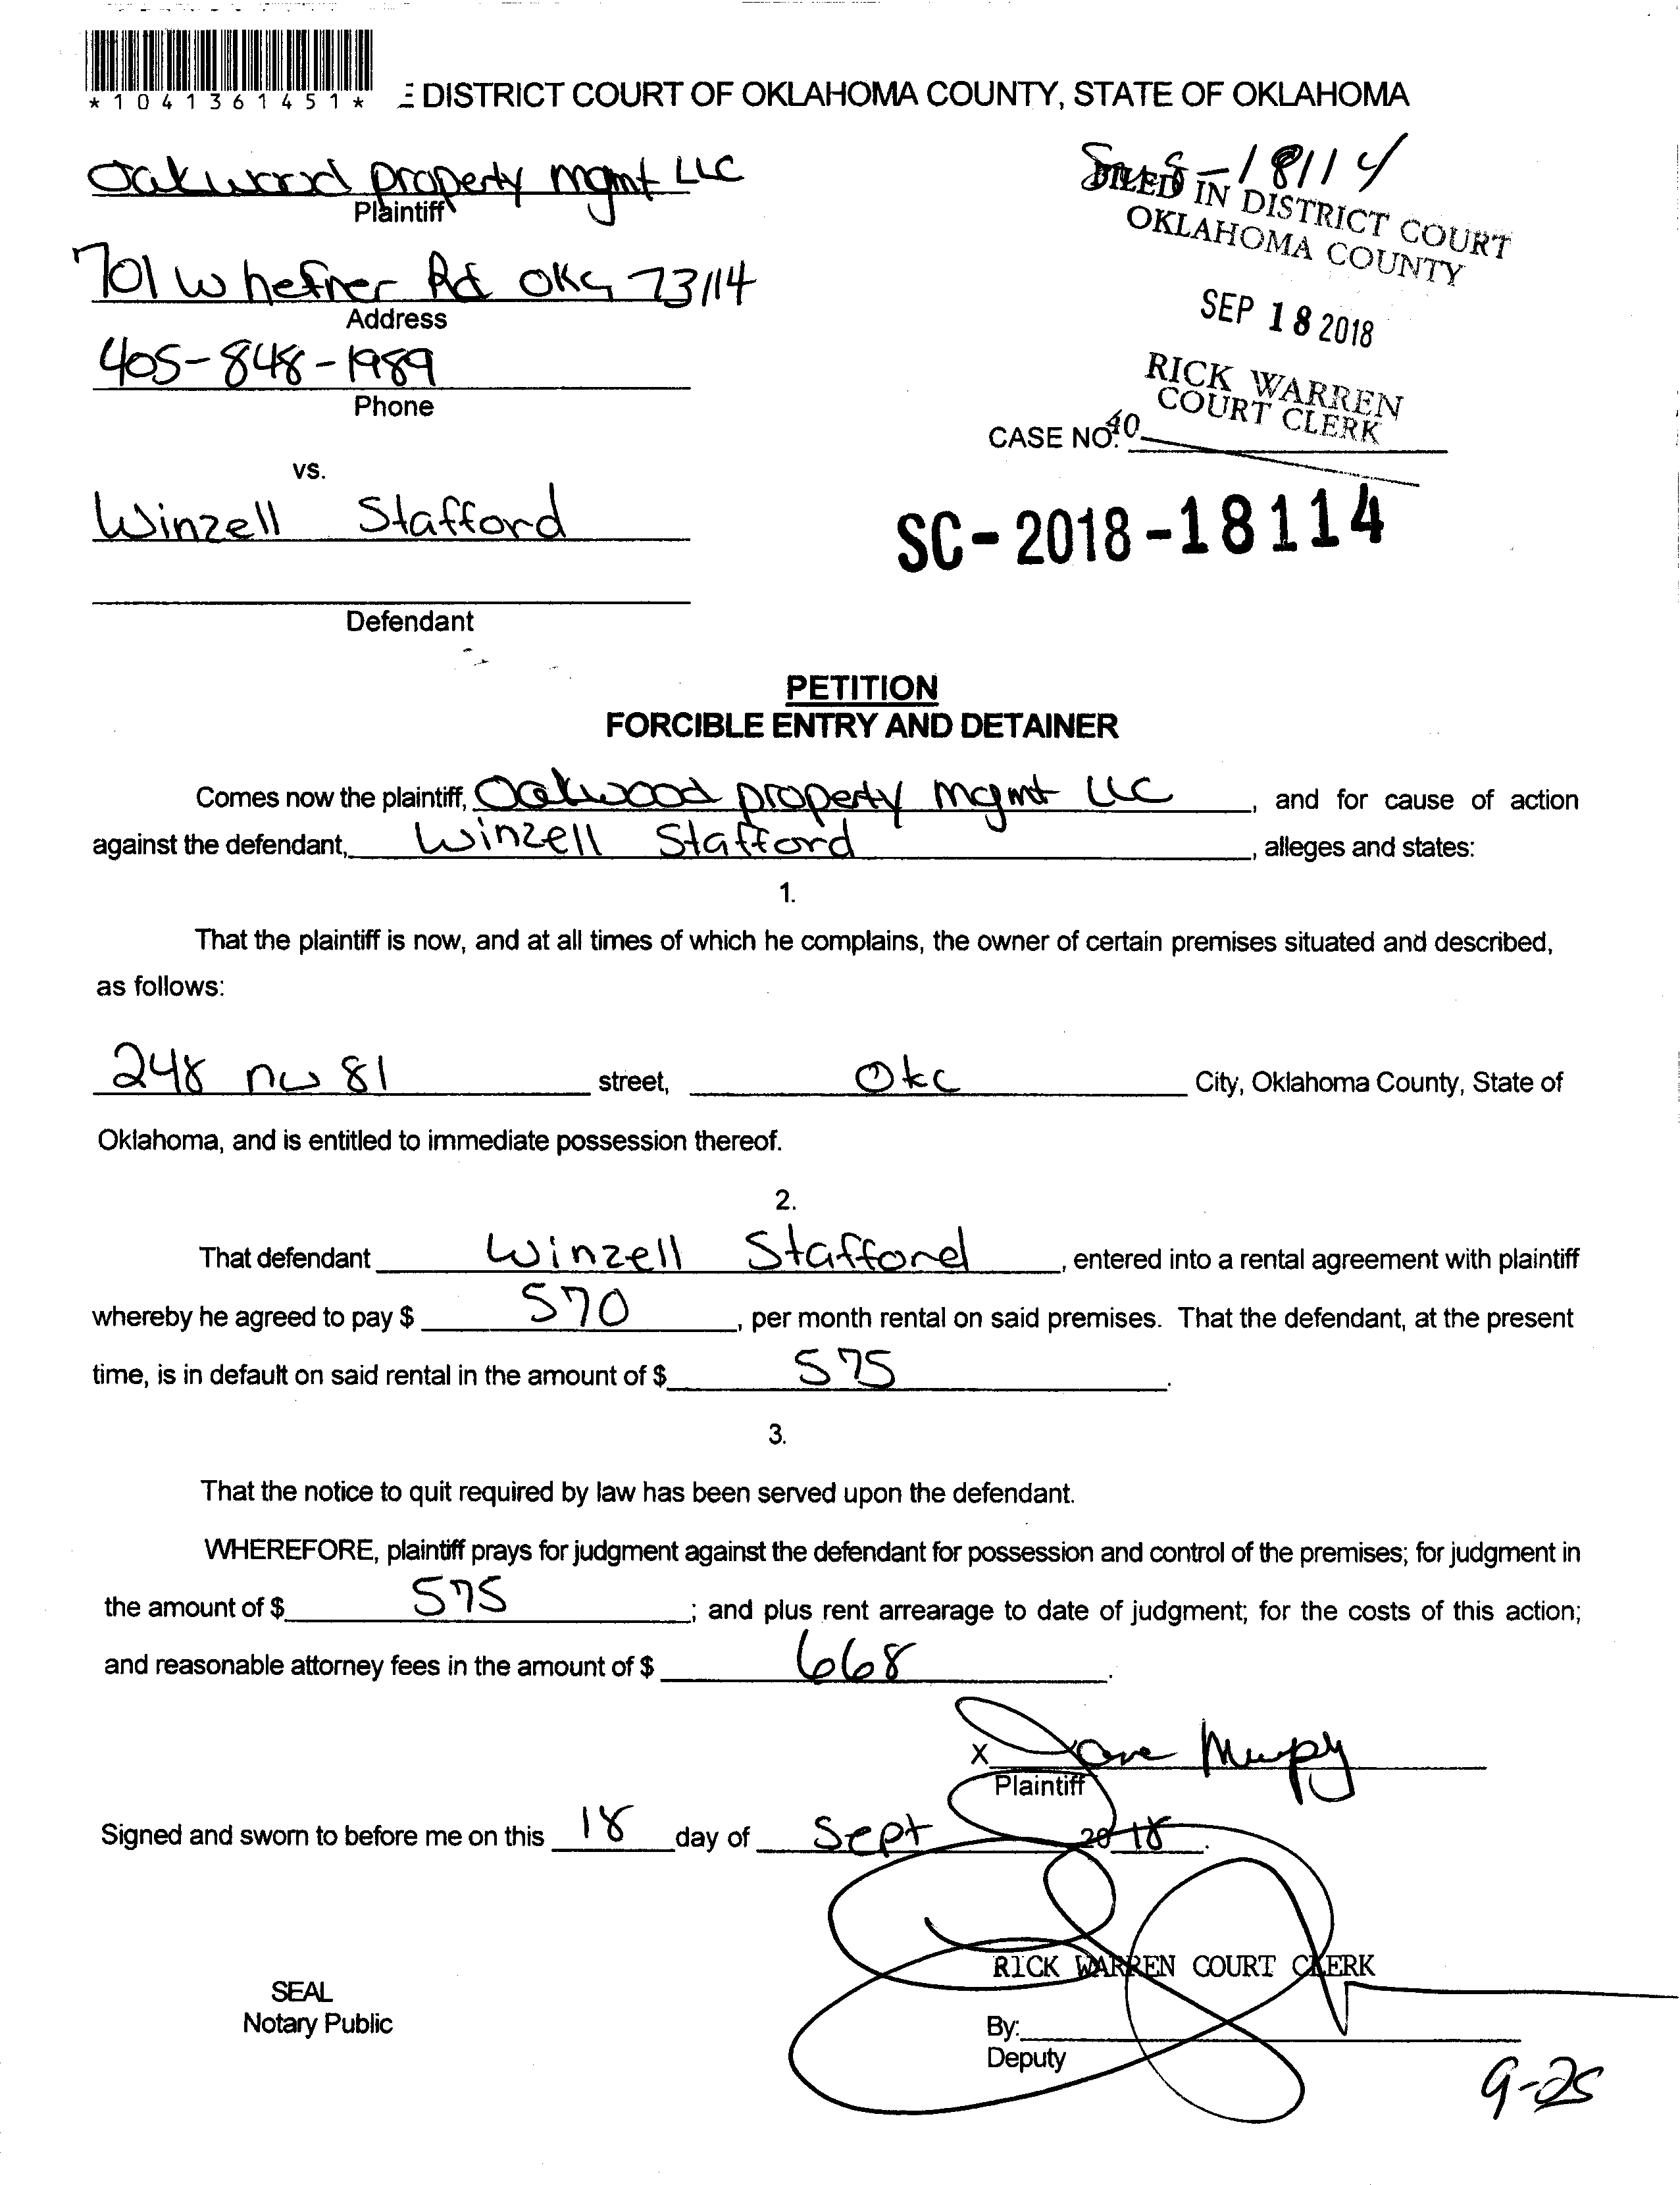 *1041361451*
DISTRICT COURT OF OKLAHOMA COUNTY, STATE OF OKLAHOMA
Oakwood property mgmt LLC
Plaintiff
701 W hefner Rd OKC 73114
Address
405-848-1989
Phone
vs.
Winzell Stafford
Defendant
-18114
FILED IN DISTRICT COURT
OKLAHOMA COUNTY
SEP 18 2018
RICK WARREN
COURT CLERK
CASE NO. 40
SC-2018-18114
PETITION
FORCIBLE ENTRY AND DETAINER
Comes now the plaintiff, Oakwood property mgmt LLC, and for cause of action
against the defendant, Winzell Stafford, alleges and states:
1.
That the plaintiff is now, and at all times of which he complains, the owner of certain premises situated and described,
as follows:
248 nw 81 street, Okc City, Oklahoma County, State of
Oklahoma, and is entitled to immediate possession thereof.
2.
That defendant Winzell Stafford, entered into a rental agreement with plaintiff
whereby he agreed to pay $ 570, per month rental on said premises. That the defendant, at the present
time, is in default on said rental in the amount of $ 575.
3.
That the notice to quit required by law has been served upon the defendant.
WHEREFORE, plaintiff prays for judgment against the defendant for possession and control of the premises; for judgment in
the amount of $ 575; and plus rent arrearage to date of judgment; for the costs of this action;
and reasonable attorney fees in the amount of $ 668.
X
Plaintiff
Signed and sworn to before me on this 18 day of Sept 2018.
RICK WARREN COURT CLERK
SEAL
Notary Public
By:
Deputy
9-25